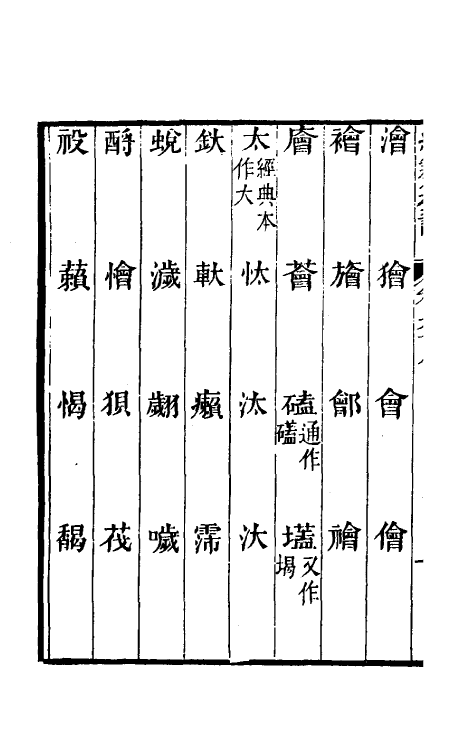 澮 獪 會 儈
襘 旝 鄶 禬
廥 薈 磕通作礚 壒又作堨
太經典本作大 忲 汰 汏
釱 軑 癩
蛻 濊 翽 噦
酹 懀 狽 茷
祋 藾 愒